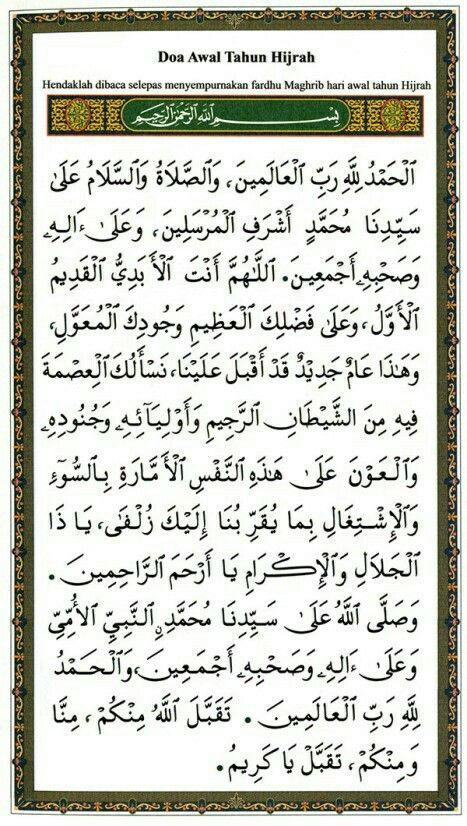 Doa Awal Tahun Hijrah
Hendaklah dibaca selepas menyempurnakan fardhu Maghrib hari awal tahun Hijrah
بِسْمِ اللَّهِ الرَّحْمَٰنِ الرَّحِيمِ
اَلْحَمْدُ لِلَّهِ رَبِّ الْعَالَمِينَ، وَالصَّلَاةُ وَالسَّلَامُ عَلَىٰ
سَيِّدِنَا مُحَمَّدٍ أَشْرَفِ الْمُرْسَلِينَ، وَعَلَىٰ ءَالِهِ
وَصَحْبِهِ أَجْمَعِينَ. اَللَّهُمَّ أَنْتَ الْأَبَدِيُّ الْقَدِيمُ
الْأَوَّلُ، وَعَلَىٰ فَضْلِكَ الْعَظِيمِ وَجُودِكَ الْمُعَوَّلِ،
وَهَٰذَا عَامٌ جَدِيدٌ قَدْ أَقْبَلَ عَلَيْنَا، نَسْأَلُكَ الْعِصْمَةَ
فِيهِ مِنَ الشَّيْطَانِ الرَّجِيمِ وَأَوْلِيَآئِهِ وَجُنُودِهِ
وَالْعَوْنَ عَلَىٰ هَٰذِهِ النَّفْسِ الْأَمَّارَةِ بِالسُّوٓءِ
وَالْإِشْتِغَالِ بِمَا يُقَرِّبُنَا إِلَيْكَ زُلْفَى، يَا ذَا
الْجَلَالِ وَالْإِكْرَامِ يَا أَرْحَمَ الرَّاحِمِينَ.
وَصَلَّى اللَّهُ عَلَىٰ سَيِّدِنَا مُحَمَّدٍ النَّبِيِّ الْأُمِّيِّ
وَعَلَىٰ ءَالِهِ وَصَحْبِهِ أَجْمَعِينَ، وَالْحَمْدُ
لِلَّهِ رَبِّ الْعَالَمِينَ. تَقَبَّلَ اللَّهُ مِنْكُمْ، مِنَّا
وَمِنْكُمْ، تَقَبَّلْ يَا كَرِيمُ.